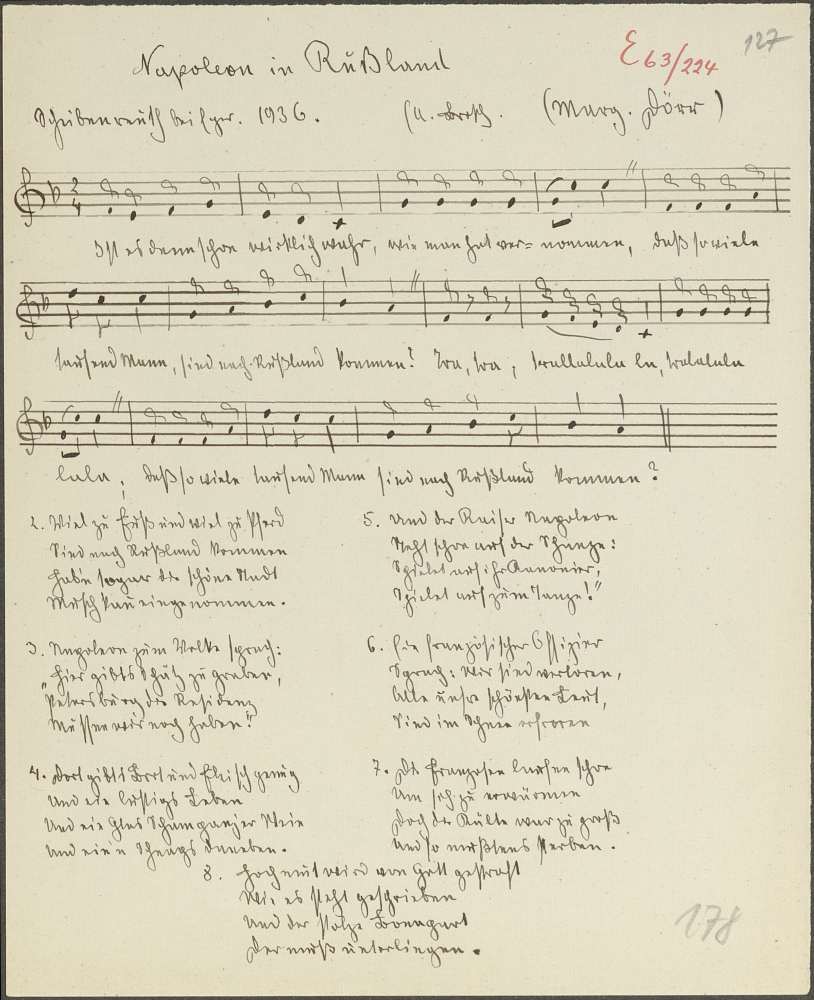 127
E 63/224
Napoleon in Rußland
Scheibenreuth bei Eger. 1936. (A. Brosch. (Marg. Dörr)
Ist es denn schon wirklich wahr, wie man hat ver= nommen, daß so viele
tausend Mann, sind nach Rußland kommen? Tra, tra, trallalala la, tralalala
lala, daß so viele tausend Mann sind nach Rußland kommen?
2. Viel zu Fuß und viel zu Pferd
Sind nach Rußland kommen
Hab'n sogar die schöne Stadt
Moschkau eingenommen.
3. Napoleon zum Volke sprach:
"Hier gibts Schätz zu graben,
Petersburg die Residenz
Müssen wir noch haben!"
4. Dort gibts Brot und Fleisch genug
Und ein lustigs Leben
Und ein Glas Schampanjer Wein
Und ein'n Schnaps daneben.
5. Und der Kaiser Napoleon
Steht schon auf der Schanze:
Spielet auf ihr Kanonier,
Spielet auf zum Tanze!"
6. Ein französischer Offizier
Sprach: Wir sind verloren,
Alle unsre schönsten Leut,
Sind im Schnee erfroren
7. Die Franzosen laufen schon
Um sich zu erwärmen
Doch die Kälte war zu groß
Und so mußtens sterben.
8. Hochmut wird von Gott gestraft
Wie es steht geschrieben
Und der stolze Bonapart
Der muß unterliegen.
178